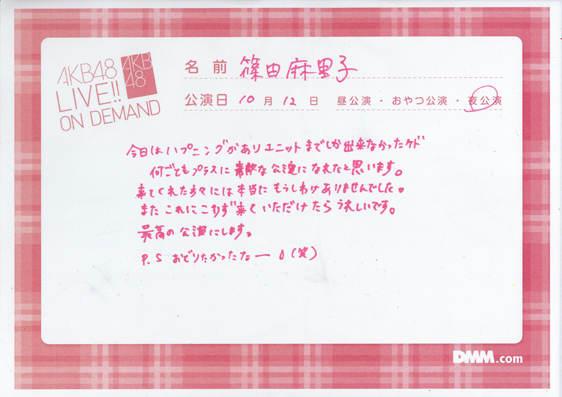 AKB48
LIVE!!
ON DEMAND
AKB
48
名前 篠田麻里子
公演日 10月12日 昼公演・おやつ公演・夜公演
今日はハプニングがありユニットまでしか出来なかったケド
何ごともプラスに素敵な公演になれたと思います。
来てくれた方々には本当にもうしわけありませんでした。
またこれにこりず来ていただけたらうれしいです。
最高の公演にします。
P.S おどりたかったなー。(笑)
DMM.com